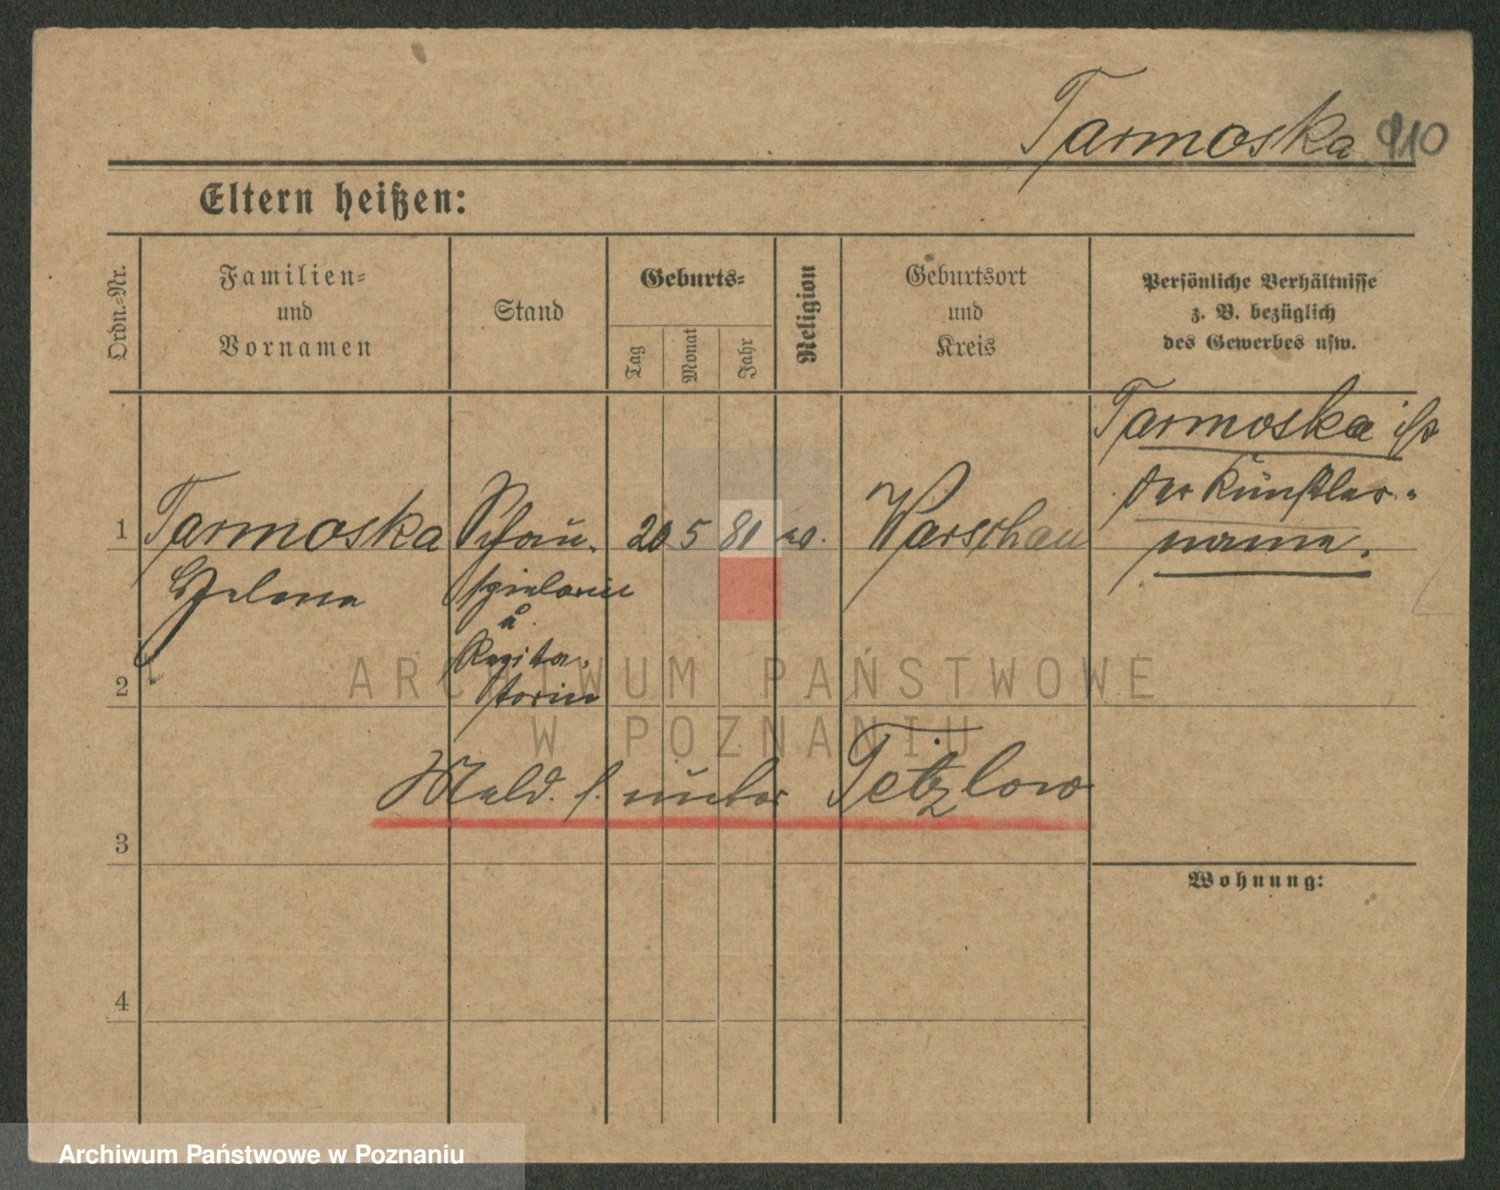 Tarmoska 910
Eltern heißen:
Ordn.-Nr.
Familien-
und
Vornamen
Stand
Geburts-
Tag
Monat
Jahr
Religion
Geburtsort
und
Kreis
Persönliche Verhältnisse
z. B. bezüglich
des Gewerbes usw.
Tarmoska ist
der Künstler-
name.
1 Tarmoska Schau- 20 5 81 Warschau
Helena spielerin
u.
Rezita-
2 torin
Meld. s. unter Tetzlow
3
Wohnung:
4
ARCHIWUM PAŃSTWOWE
W POZNANIU
Archiwum Państwowe w Poznaniu